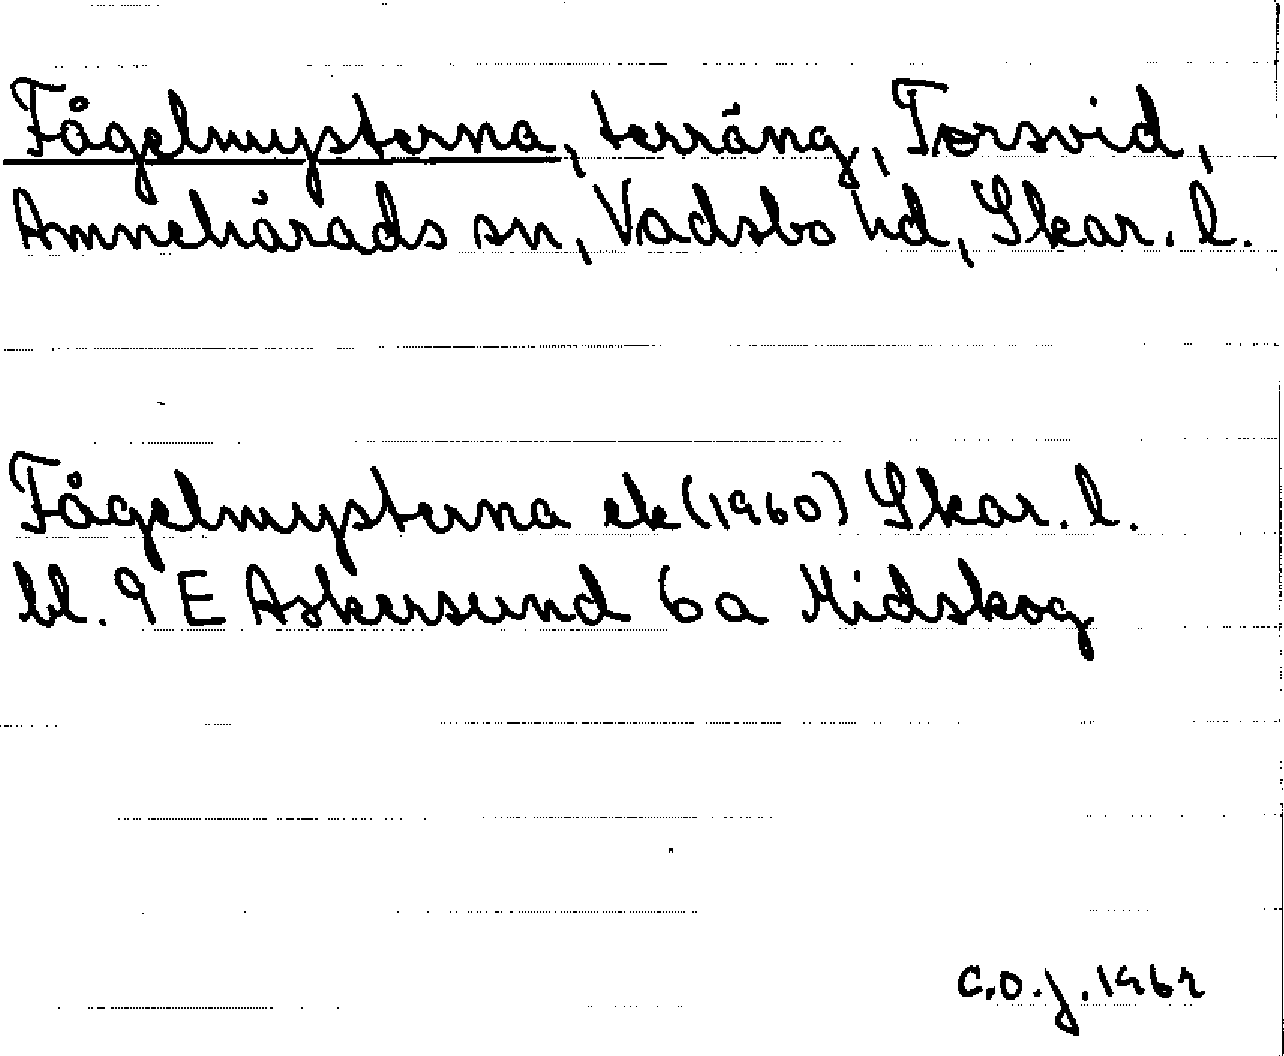 Fågelmysterna, terräng, Torsvid,
Amnehärads sn, Vadsbo hd, Skar. l.
Fågelmysterna ek (1960) Skar. l.
bl. 9 E Askersund 6 a Midskog
C.O.J. 1962